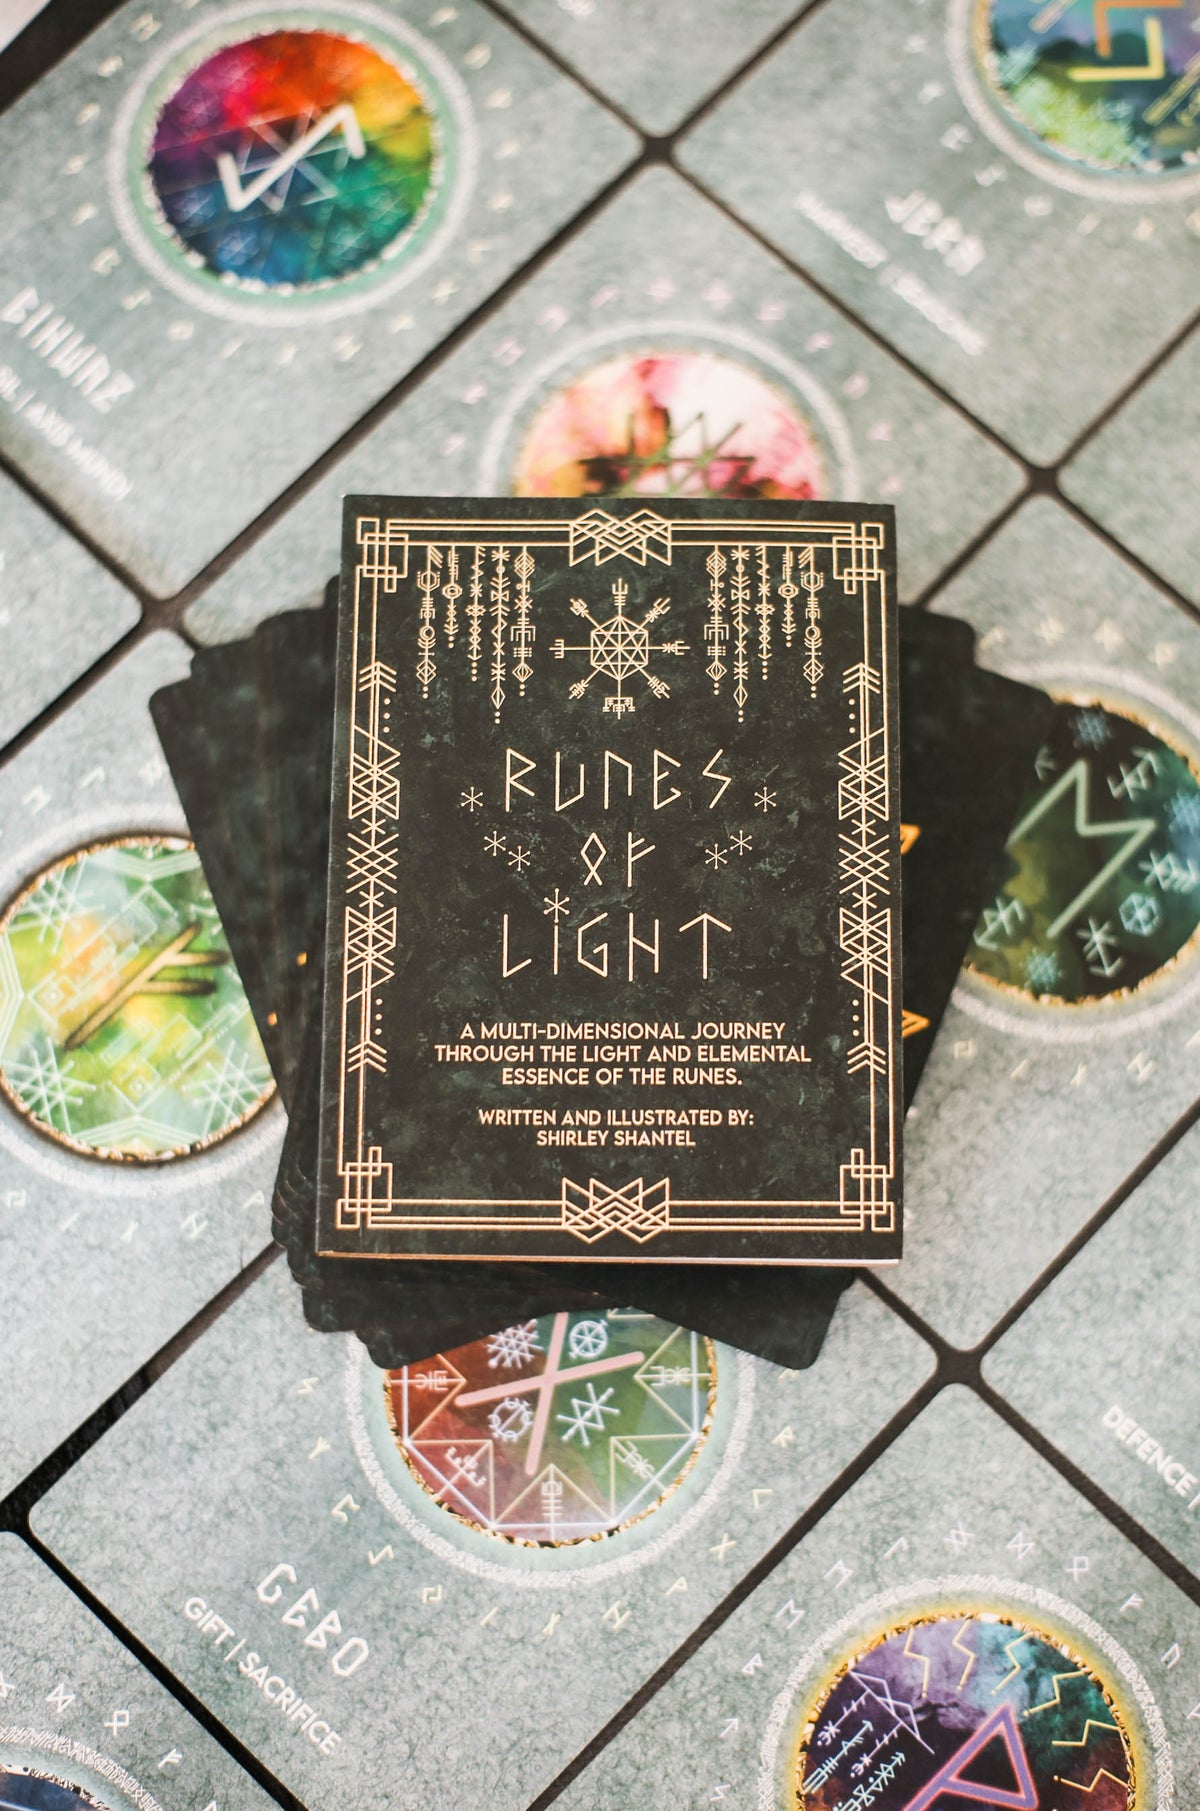 JERA
EIHWAZ
AXIS MUNDI
RUNES
OF
LIGHT
A MULTI-DIMENSIONAL JOURNEY
THROUGH THE LIGHT AND ELEMENTAL
ESSENCE OF THE RUNES.
WRITTEN AND ILLUSTRATED BY:
SHIRLEY SHANTEL
DEFENCE |
GEBO
GIFT | SACRIFICE